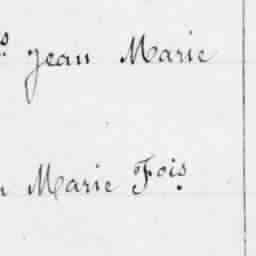 Jean Marie
Marie Fois